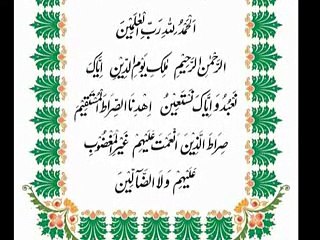 اَلْحَمْدُ لِلّٰهِ رَبِّ الْعٰلَمِيْنَ
الرَّحْمٰنِ الرَّحِيْمِ مٰلِكِ يَوْمِ الدِّيْنِ اِيَّاكَ
نَعْبُدُ وَ اِيَّاكَ نَسْتَعِيْنُ اِهْدِنَا الصِّرَاطَ الْمُسْتَقِيْمَ
صِرَاطَ الَّذِيْنَ اَنْعَمْتَ عَلَيْهِمْ غَيْرِ الْمَغْضُوْبِ
عَلَيْهِمْ وَلَا الضَّآلِّيْنَ